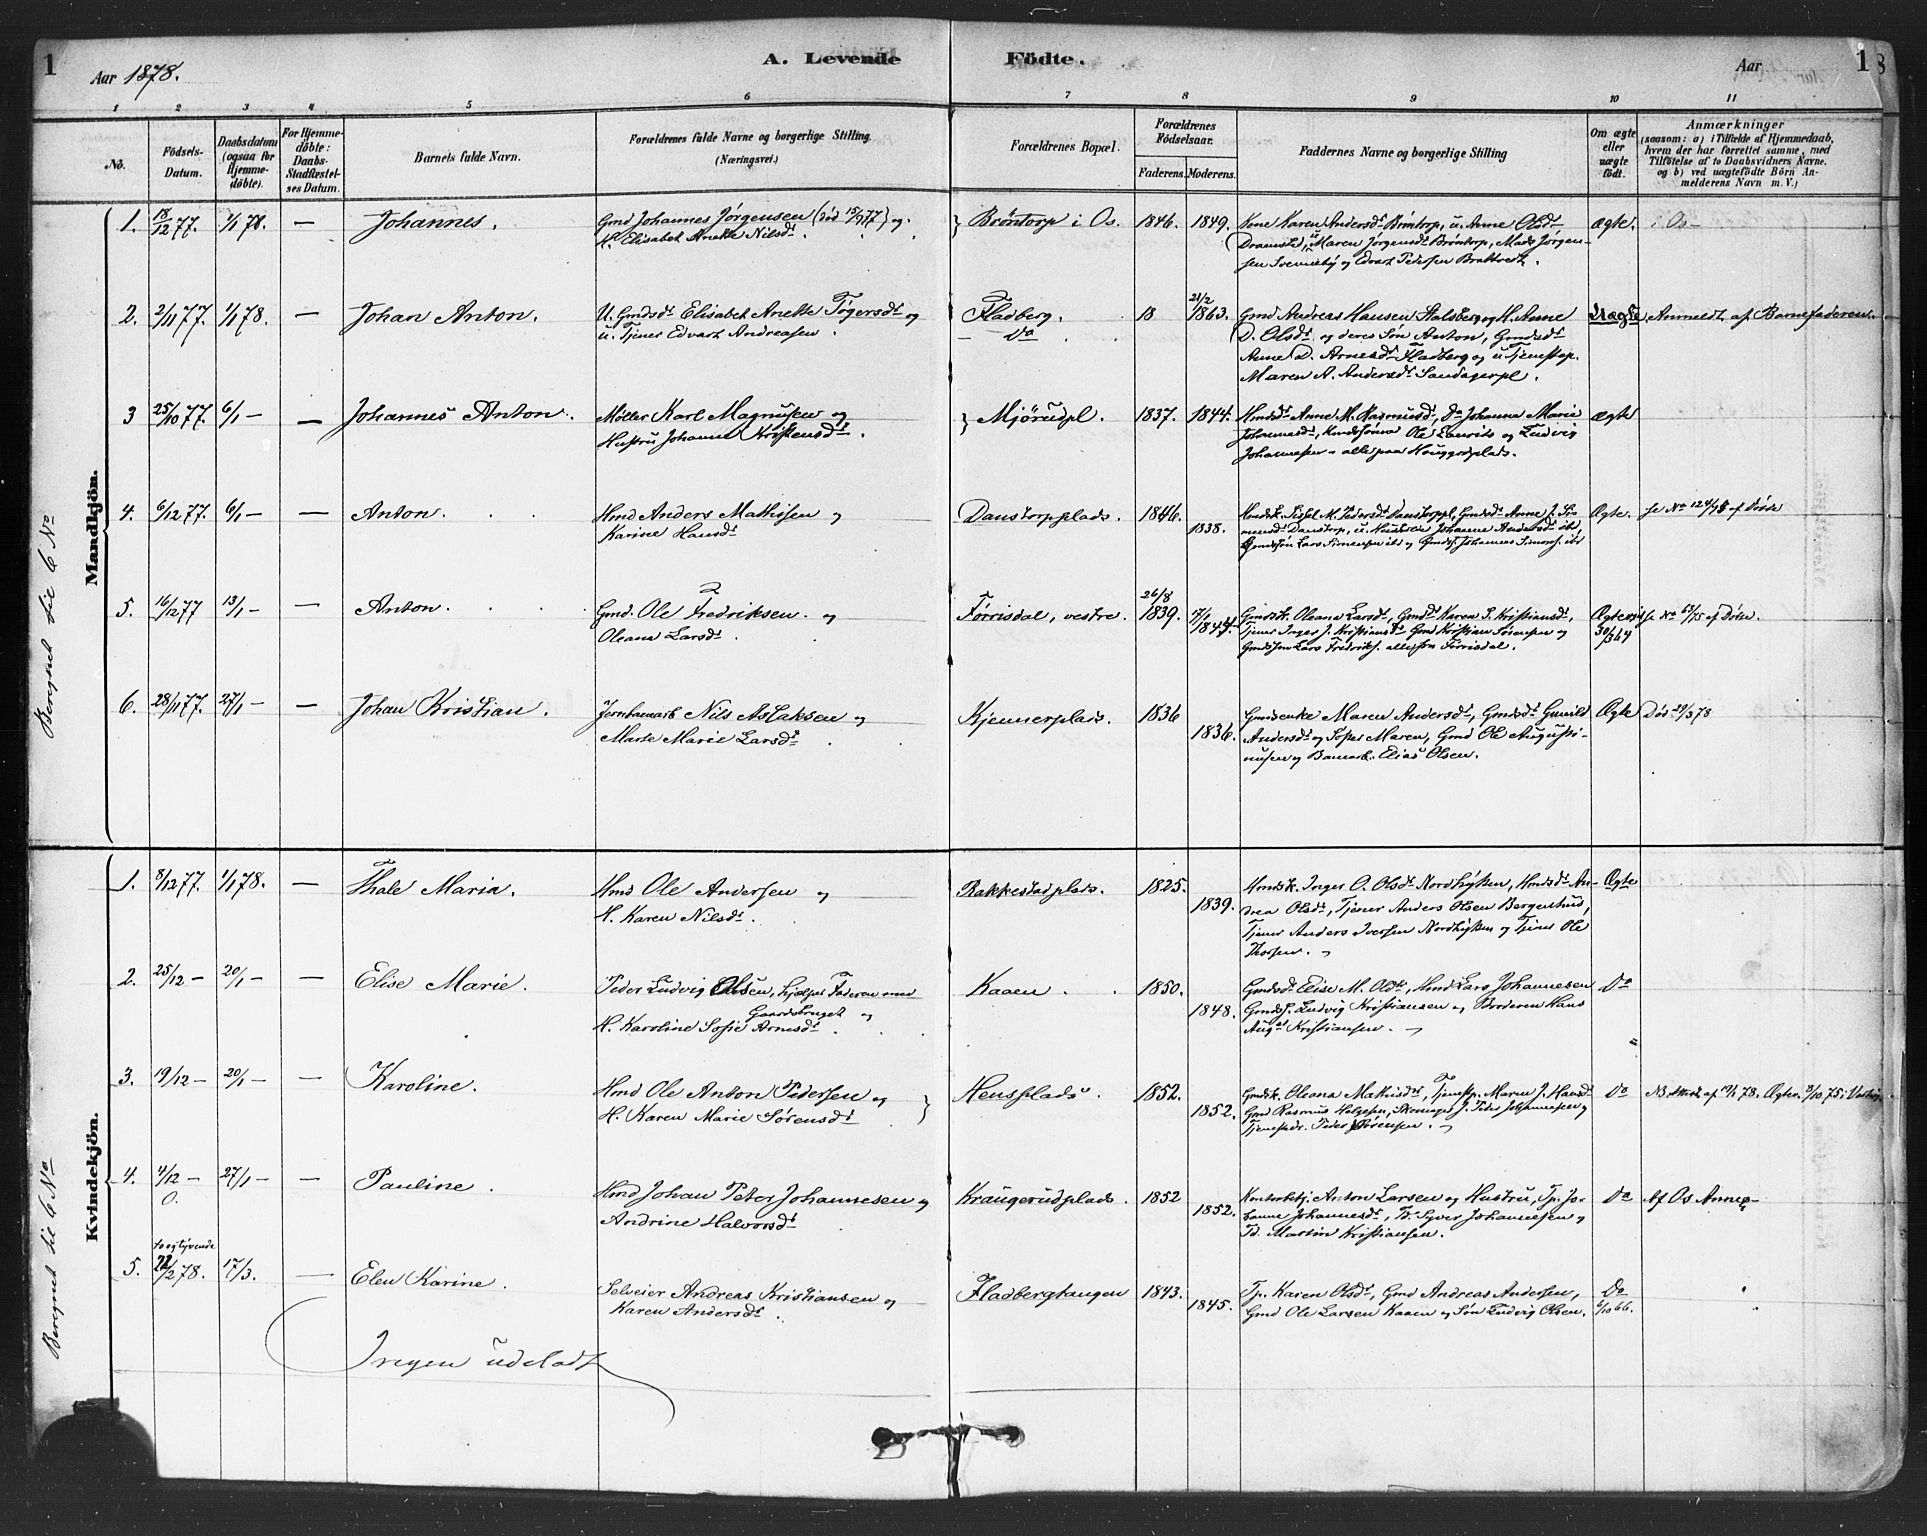 1
Aar 1878.
A. Levende
Födte.
Aar
18
1 2 3 4 5 6 7 8 9 10 11
No.
Födsels-Datum.
Daabsdatum (ogsaa for Hjemme-döbte).
For Hjemme-döbte: Daabs-Stadfæstel-ses Datum.
Barnets fulde Navn.
Forældrenes fulde Navne og borgerlige Stilling. (Næringsvei.)
Forældrenes Bopæl.
Forældrenes Födselsaar.
Faderens. Moderens.
Faddernes Navne og borgerlige Stilling
Om ægte eller uægte födt.
Anmærkninger
(saasom: a) i Tilfælde af Hjemmedaab, hvem der har forrettet samme, med Tilföielse af to Daabsvidners Navne. og b) ved uægtefödte Börn Anmelderens Navn m. V.)
Mandkjön.
Beregnet til 6 No
1. 18/12 77. 1/1 78. — Johannes. Gmd Johannes Jørgensen (død 15/9 77) og
H. Elisabet Anette Nilsdt.
Brøntorp i Os. 1846. 1849. Kone Karen Andersdt Brøntorp, u. Anne Olsdt
Dramstd, u. Maren Jørgensdt Brøntorp, Mads Jørgen-
sen Svenneby og Edvart Pedersen Brattvedt.
ægte. i Os —
2. 2/11 77. 1/1 78. — Johan Anton. U. Gmdsdt Elisabet Anette Tøgersdt og
u. Tjener Edvart Andreasen.
Fladberg. Do 18 21/2 1863. Gmd Andreas Hansen Stalsberg og H. Anne
D. Olsdt og deres Søn Anton, Gmdsdt
Anne D. Arnesdt Fladberg og u. Tjenestep.
Maren A. Andersdt Sandagerpl.
Uægte Anmeldt af Barnefaderen.
3 25/10 77. 6/1 — — Johannes Anton. Møller Karl Magnusen og
Hustru Johanne Kristensdt.
Mjørudpl. 1837. 1844. Hmdsdt Anne M. Rasmusdt, Do Johanna Marie
Johannesdt, Hmdssønner Ole Laurits og Ludvig
Johannesen - alle paa Hauggerdplads.
ægte
4. 6/12 77. 6/1 — — Anton. Hmd Anders Mathisen og
Karine Hansdt
Danstorpplads. 1846. 1838. Hmdsk. Sofie M. Pedersdt Danstorppl, Gmdsdt Anne J. Si-
monsdt Danstorp, u. Johanne Andersdt ibd,
Gmdssøn Lars Simensen ibd og Gmdss. Johannes Simons. ibd
Ægte. se No 124/78 af Døde
5. 16/12 77 13/1 — — Anton. Gmd. Ole Fredriksen og
Oleana Larsdt.
Førrisdal, vestre. 26/8 1839. 17/1 1844. Gmdsk. Oleana Larsdt, Gmdsdt Karen S. Kristiansdt,
Tjener Inger J. Kristiansdt Gmd Kristian Sørensen og
Gmdssøn Lars Fredriks. alle fra Førrisdal.
Ægteviet 30/3 64 se No 63/75 af Døde.
6. 28/11 77. 27/1 — — Johan Kristian. Jernbanearb Nils Aslaksen og
Marte Marie Larsdt.
Kjennerplads. 1836 1836. Gmdsenke Maren Andersdt, Gmdsdt Gunild
Andersdt og Søster Maren, Gmd Ole Augusti-
nusen og Banearb. Elias Olsen.
Ægte Død 29/3 78
Kvindekjön.
Beregnet til 6 No
1. 8/12 77. 1/1 78. — Thale Maria. Hmd Ole Andersen og
H. Karen Nilsdt.
Rakkestadplads. 1825. 1839. Hmdsk. Inger O. Olsdt Nordhyksen, Hmdsdt An-
drea Olsdt, Tjener Anders Olsen Bergenhus,
Tjener Anders Iversen Nordhyksen og Tjener Ole
Thorsen.
Ægte
2. 25/12 — 20/1 — — Elise Marie. Peder Ludvig Olsen, hjelper Faderen med
Gaardsbruget og
H. Karoline Sofie Arnesdt.
Kaaen. 1850. 1848. Gmdsdt Elise M. Olsdt, Hmd Lars Johannesen
Gmdss. Ludvig Kristiansen og Broderen Hans
Augst Kristiansen.
Do
3. 19/12 — 20/1 — — Karoline. Hmd Ole Anton Pedersen og
H. Karen Marie Sørensdt
Hensplads. 1852. 1852. Gmdsk. Oleana Mathisdt, Tjenestp. Maren J. Hansdt
Gmd Rasmus Helgesen, Skomager J. Peder Johannesen og
Tjenestedr. Peder Sørensen.
Do NB Attest af 12/1 78. Ægtev. 3/10 75 i
4. 4/12 — O. 27/1 — — Pauline. Hmd Johan Peter Johannesen og
Andrine Halvorsdt
Kraugerudplads. 1852 1852. Kontorbetj. Anton Larsen og Hustru, Tp. Jo-
hanne Johannesdt, Td. Syver Johannesen og
Td. Martin Kristiansen.
Do Af Os Annex
5. toogtyvende 22/2 78. 17/3. — Elen Karine. Selveier Andreas Kristiansen og
Karen Andersdt.
Fladberghaugen 1843. 1845. Tp. Karen Olsdt, Gmd Andreas Andersen,
Gmd Ole Larsen Kaaen og Søn Ludvig Olsen.
Do 6/10 66.
Ingen udeladt